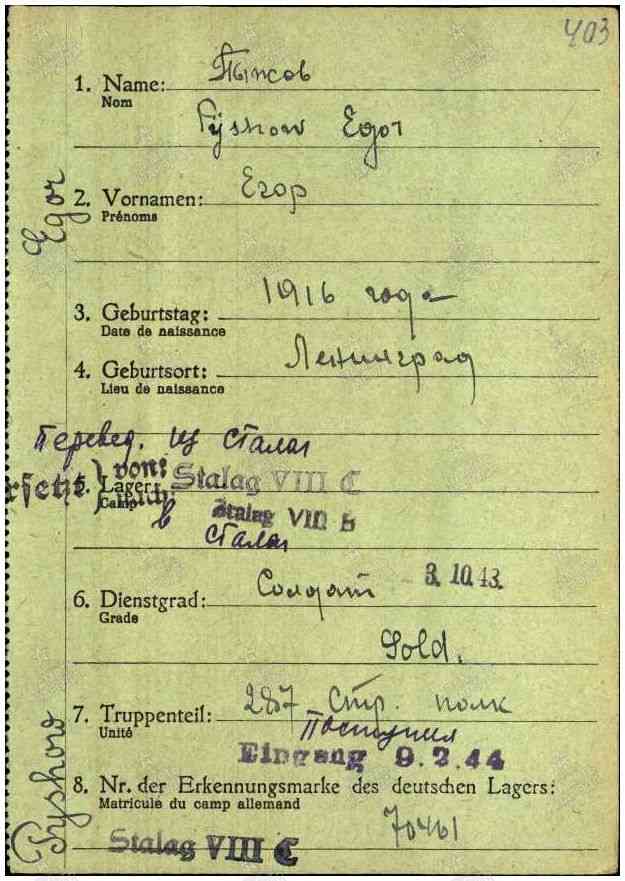 403
1. Name: Пыжов
Nom
Pyshow Egor
2. Vornamen: Егор
Prénoms
Egor
3. Geburtstag: 1916 года
Date de naissance
4. Geburtsort: Ленинград
Lieu de naissance
Перевед. из сталаг
rsetzt } vom: Stalag VIII C
5. Lager:
Camp
в Stalag VIII B
сталаг
6. Dienstgrad: Солдат 3. 10. 43.
Grade
Sold.
7. Truppenteil: 287 Стр. полк
Unité
Поступил
Eingang 9. 2. 44
8. Nr. der Erkennungsmarke des deutschen Lagers:
Matricule du camp allemand
70461
Stalag VIII C
Pyshow